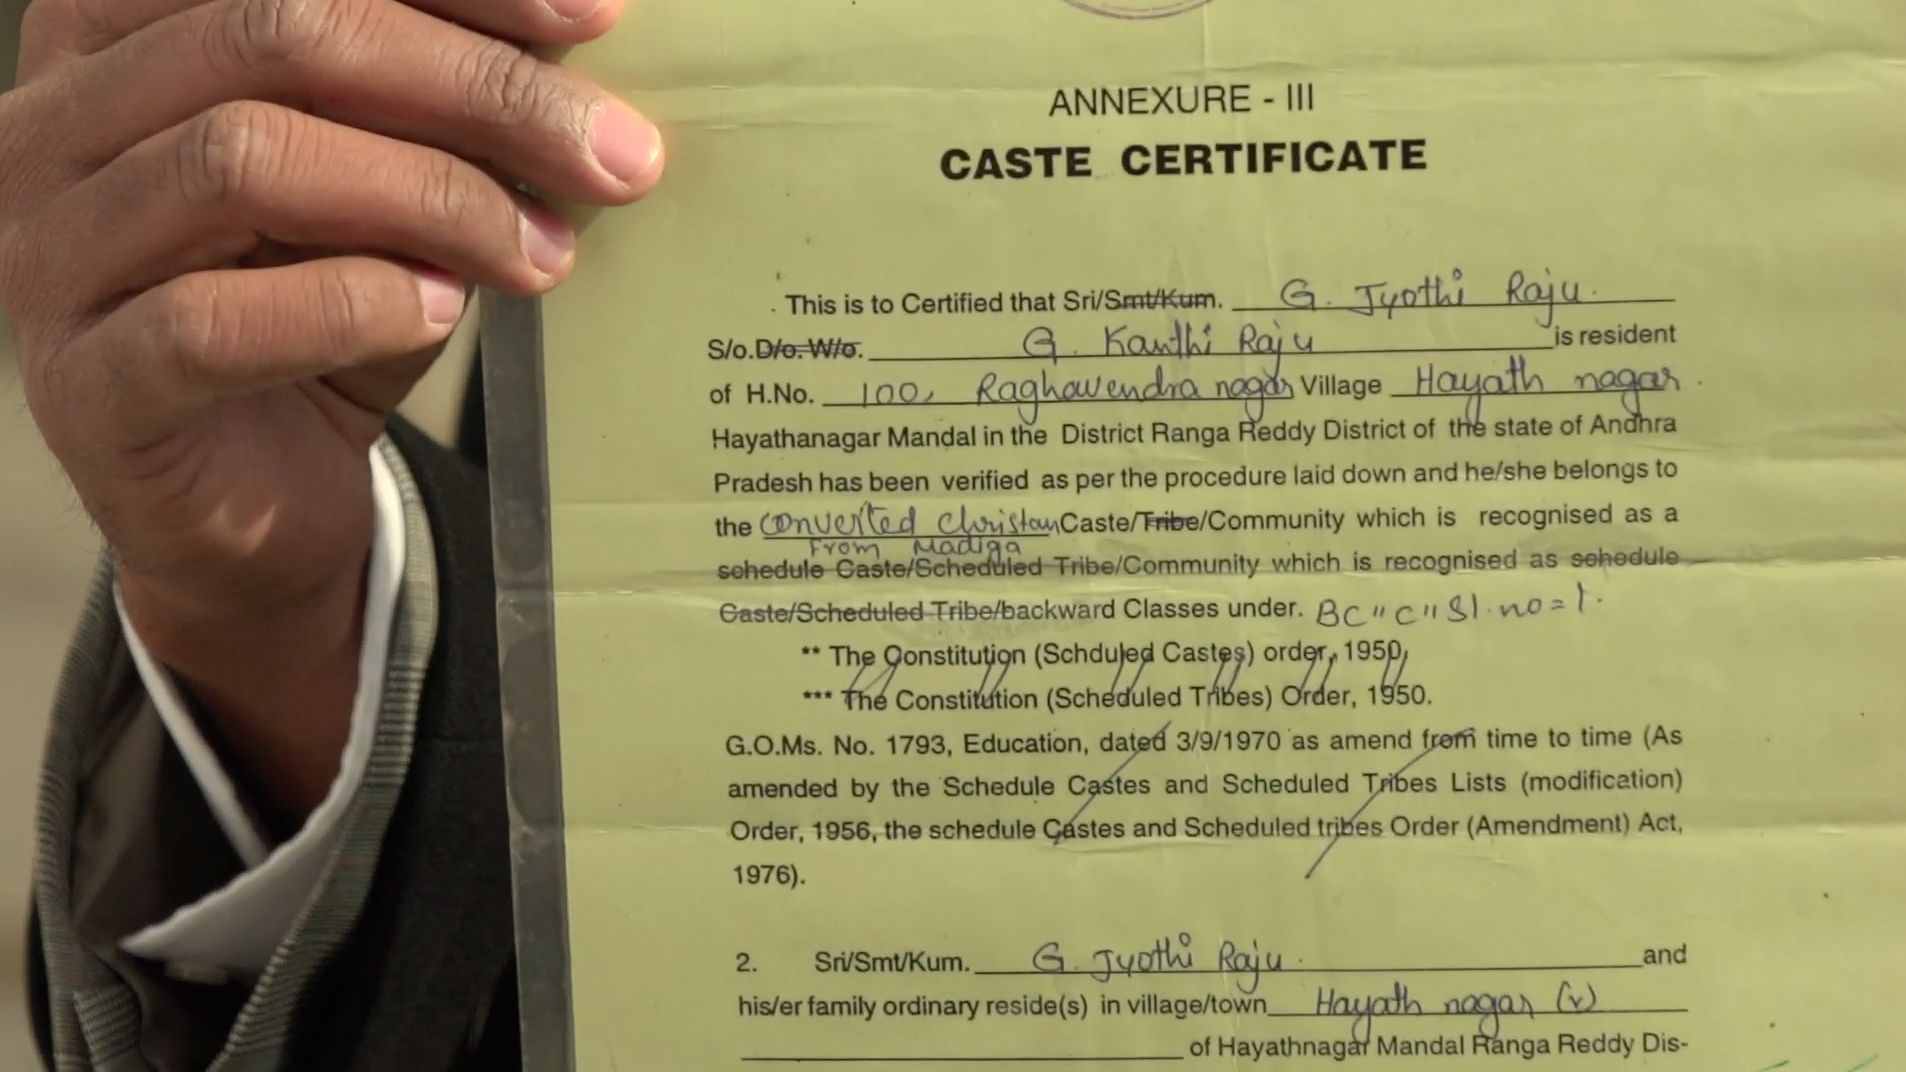 ANNEXURE - III
CASTE CERTIFICATE
. This is to Certified that Sri/Smt/Kum. G. Jyothi Raju.
S/o.D/o. W/o. G. Kanthi Raju is resident
of H.No. 100, Raghavendra nagar Village Hayath nagar.
Hayathanagar Mandal in the District Ranga Reddy District of the state of Andhra
Pradesh has been verified as per the procedure laid down and he/she belongs to
the converted Christan Caste/Tribe/Community which is recognised as a
From Madiga
schedule Caste/Scheduled Tribe/Community which is recognised as schedule
Caste/Scheduled Tribe/backward Classes under. BC "C" Sl. no = 1.
** The Constitution (Schduled Castes) order, 1950,
*** The Constitution (Scheduled Tribes) Order, 1950.
G.O.Ms. No. 1793, Education, dated 3/9/1970 as amend from time to time (As
amended by the Schedule Castes and Scheduled Tribes Lists (modification)
Order, 1956, the schedule Castes and Scheduled tribes Order (Amendment) Act,
1976).
2. Sri/Smt/Kum. G. Jyothi Raju. and
his/er family ordinary reside(s) in village/town Hayath nagar (v)
of Hayathnagar Mandal Ranga Reddy Dis-